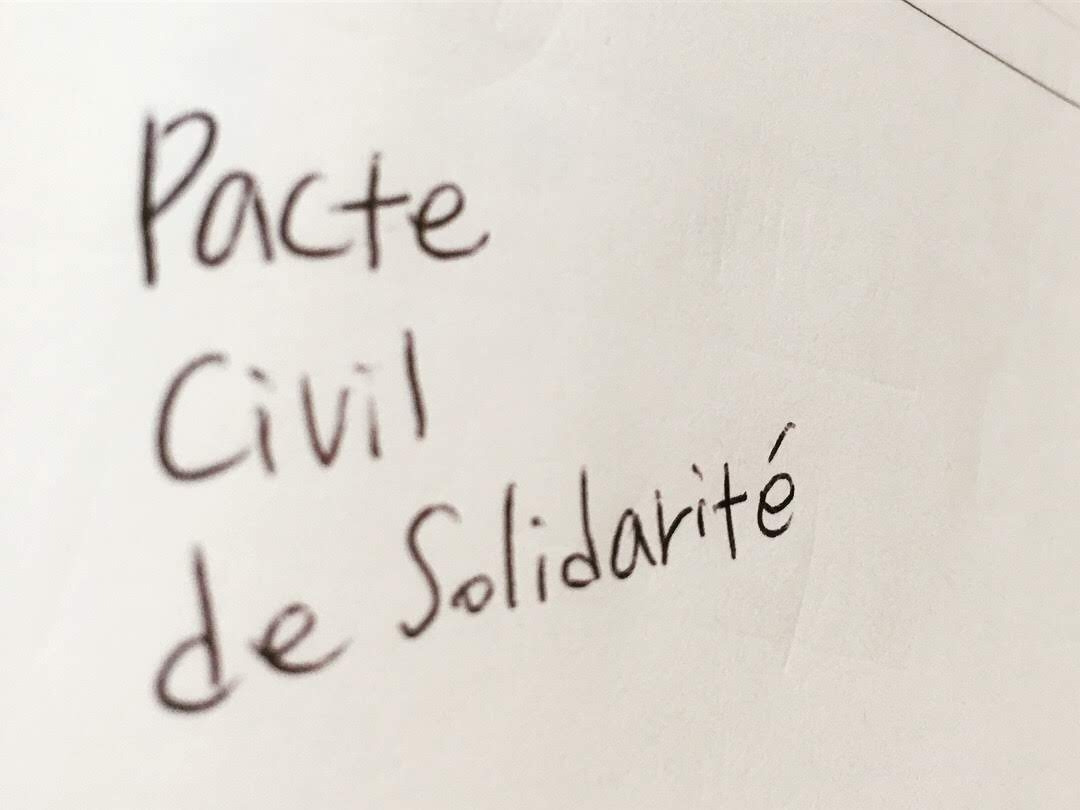 Pacte
Civil
de Solidarité